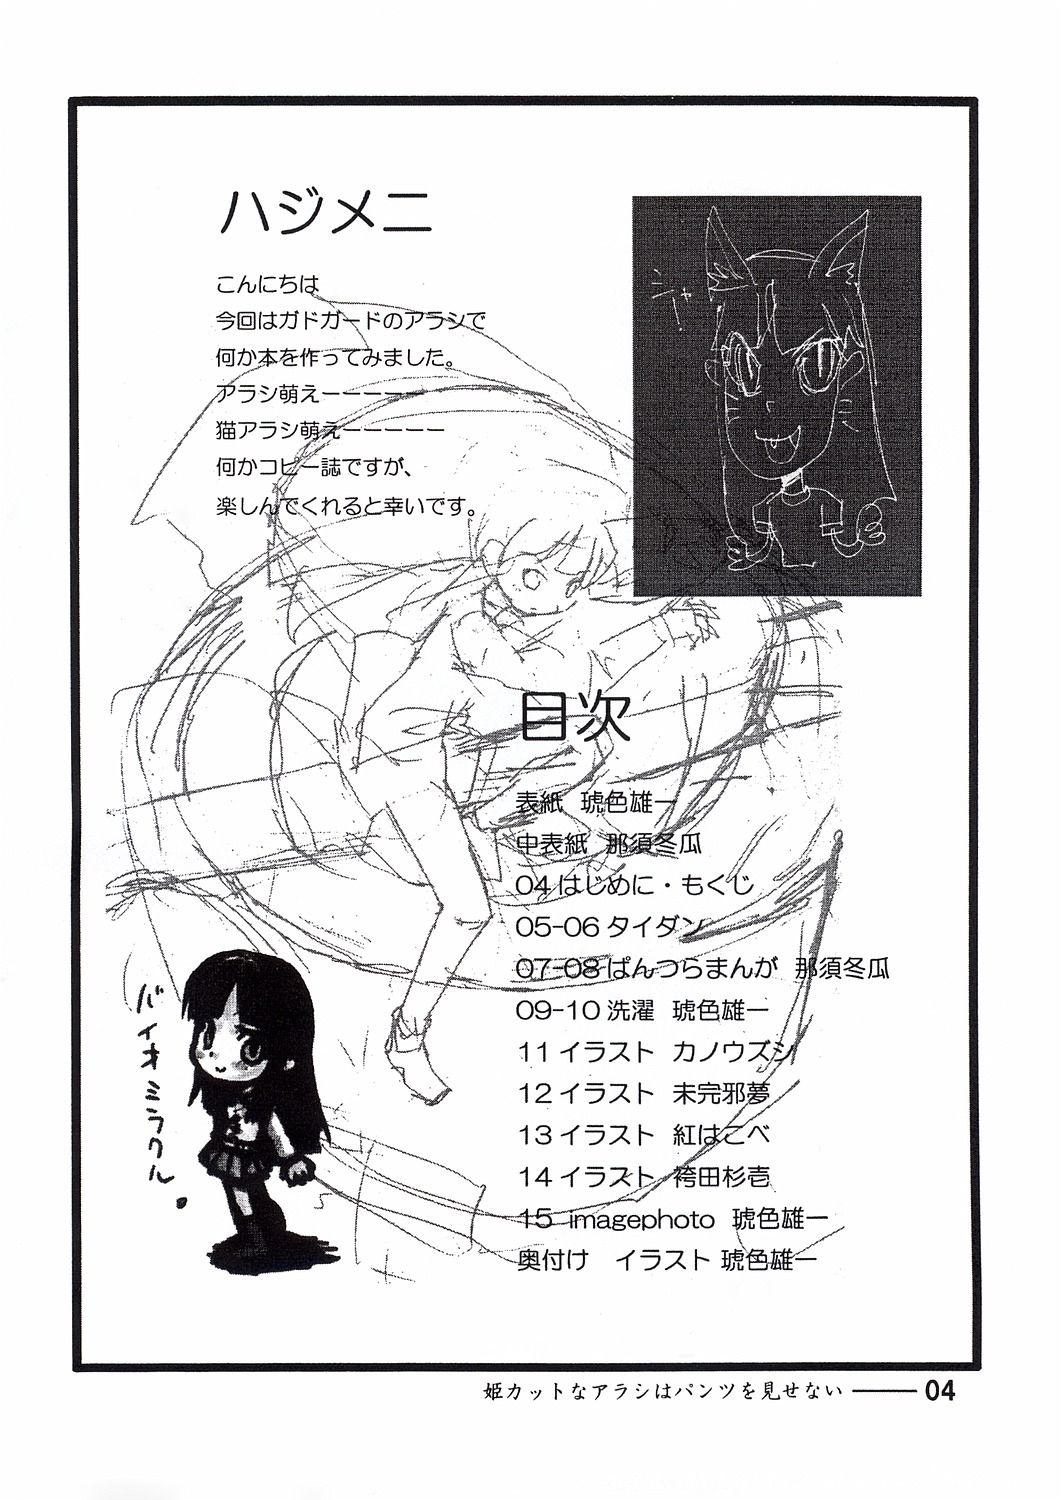 ハジメニ
こんにちは
今回はガドガードのアラシで
何か本を作ってみました。
アラシ萌えーーーーー
猫アラシ萌えーーーーー
何かコピー誌ですが、
楽しんでくれると幸いです。
ニャー
目次
表紙 琥色雄一
中表紙 那須冬瓜
04 はじめに・もくじ
05-06 タイダン
07-08 ぱんつらまんが 那須冬瓜
09-10 洗濯 琥色雄一
11 イラスト カノウズシ
12 イラスト 未完邪夢
13 イラスト 紅はこべ
14 イラスト 袴田杉壱
15 imagephoto 琥色雄一
奥付け イラスト 琥色雄一
バイオミラクル。
姫カットなアラシはパンツを見せない ―― 04